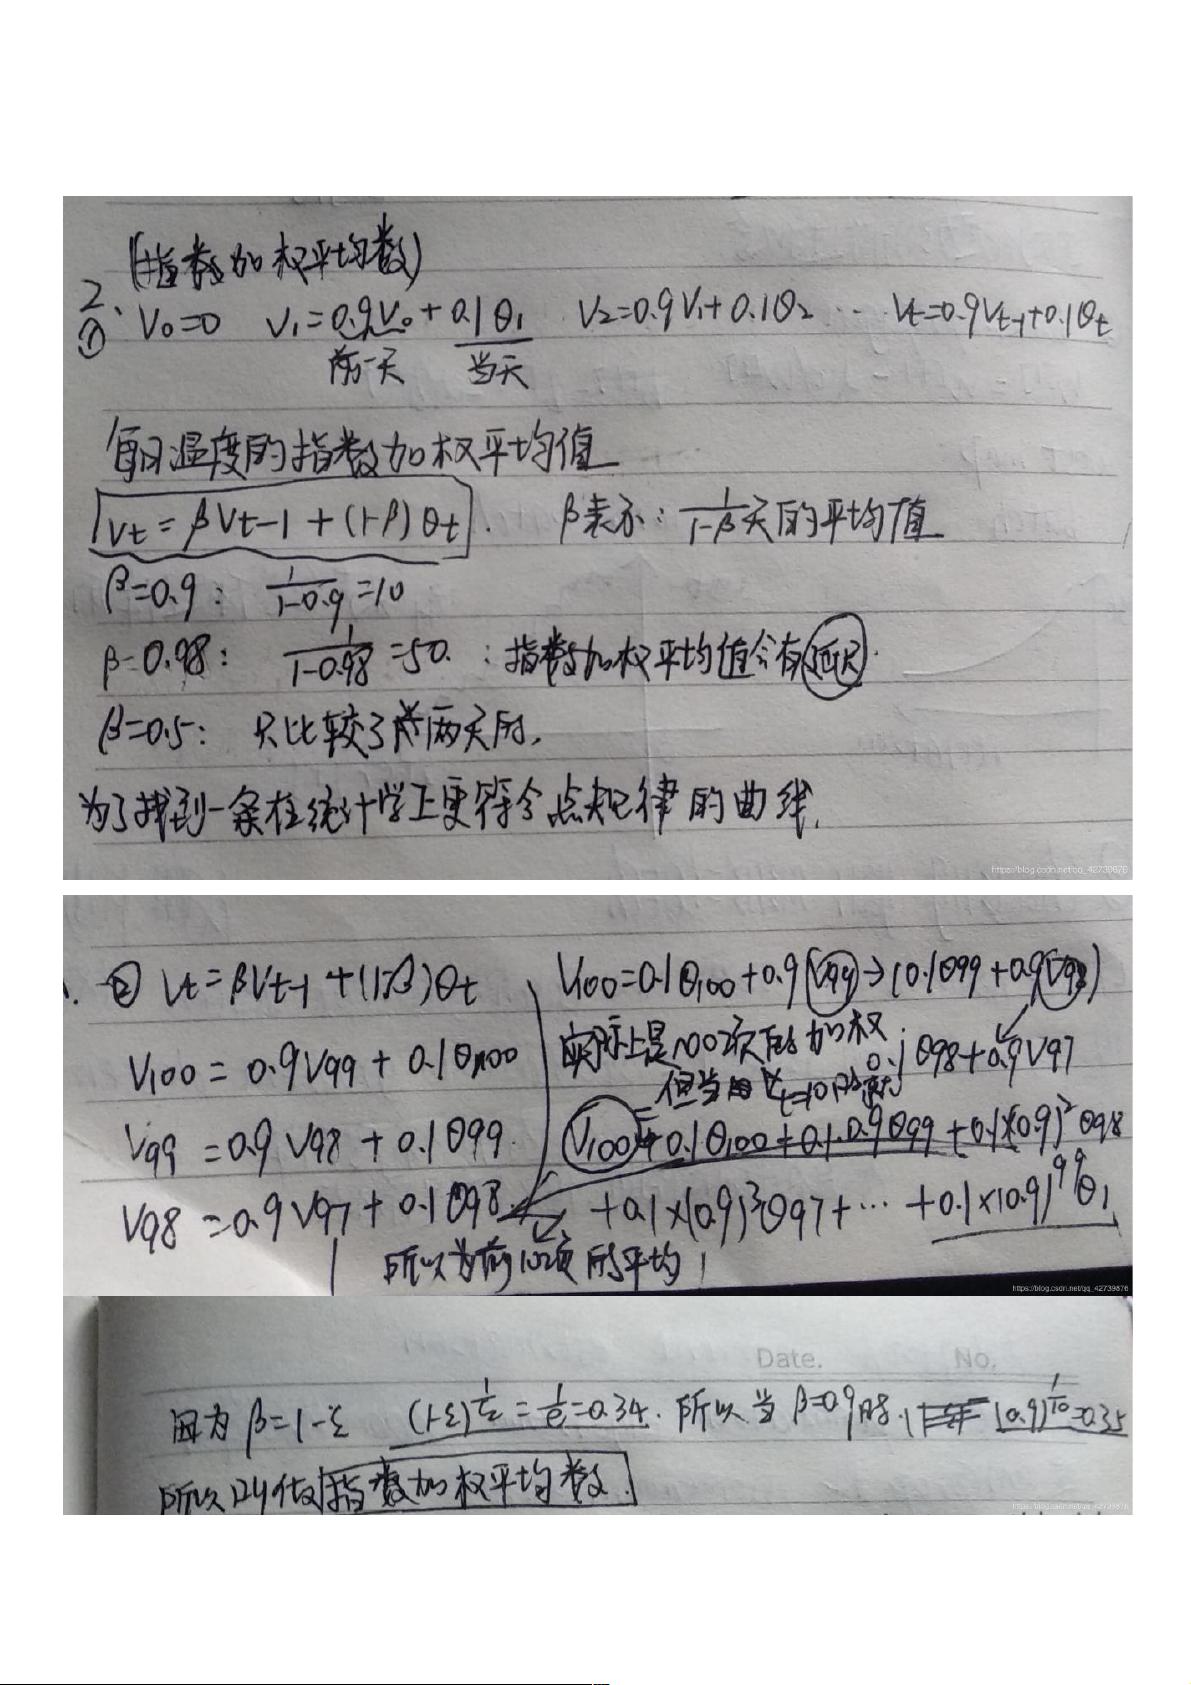 (指数加权平均数)
2、
① V₀=0 V₁=0.9V₀+0.1θ₁ V₂=0.9V₁+0.1θ₂ … Vt=0.9Vt-1+0.1θt
前一天 当天
每日温度的指数加权平均值
Vt=βVt-1+(1-β)θt. β表示: 1/(1-β)天的平均值
β=0.9: 1/(1-0.9)=10
β=0.98: 1/(1-0.98)=50. :指数加权平均值会有延迟.
β=0.5: 只比较了 两天的,
为了找到一条在统计学上更符合点规律的曲线,
https://blog.csdn.net/qq_42739876
② Vt=βVt-1+(1-β)θt
V100=0.9V99+0.1θ100
V99=0.9V98+0.1θ99.
V98=0.9V97+0.1θ98
V100=0.1θ100+0.9(V99→(0.1θ99+0.9V98)
实际上是100项的加权 0.1θ98+0.9V97
但当 t=10时
V100=0.1θ100+0.1·0.9θ99+0.1×(0.9)²θ98
+0.1×(0.9)³θ97+…+0.1×(0.9)⁹⁹θ₁
所以为前10项的平均
https://blog.csdn.net/qq_42739876
Date. No.
因为β=1-ε (1-ε)^(1/ε)=1/e=0.34. 所以当β=0.9时, (0.9)^(1/10)=0.35
所以叫做指数加权平均数.
https://blog.csdn.net/qq_42739876